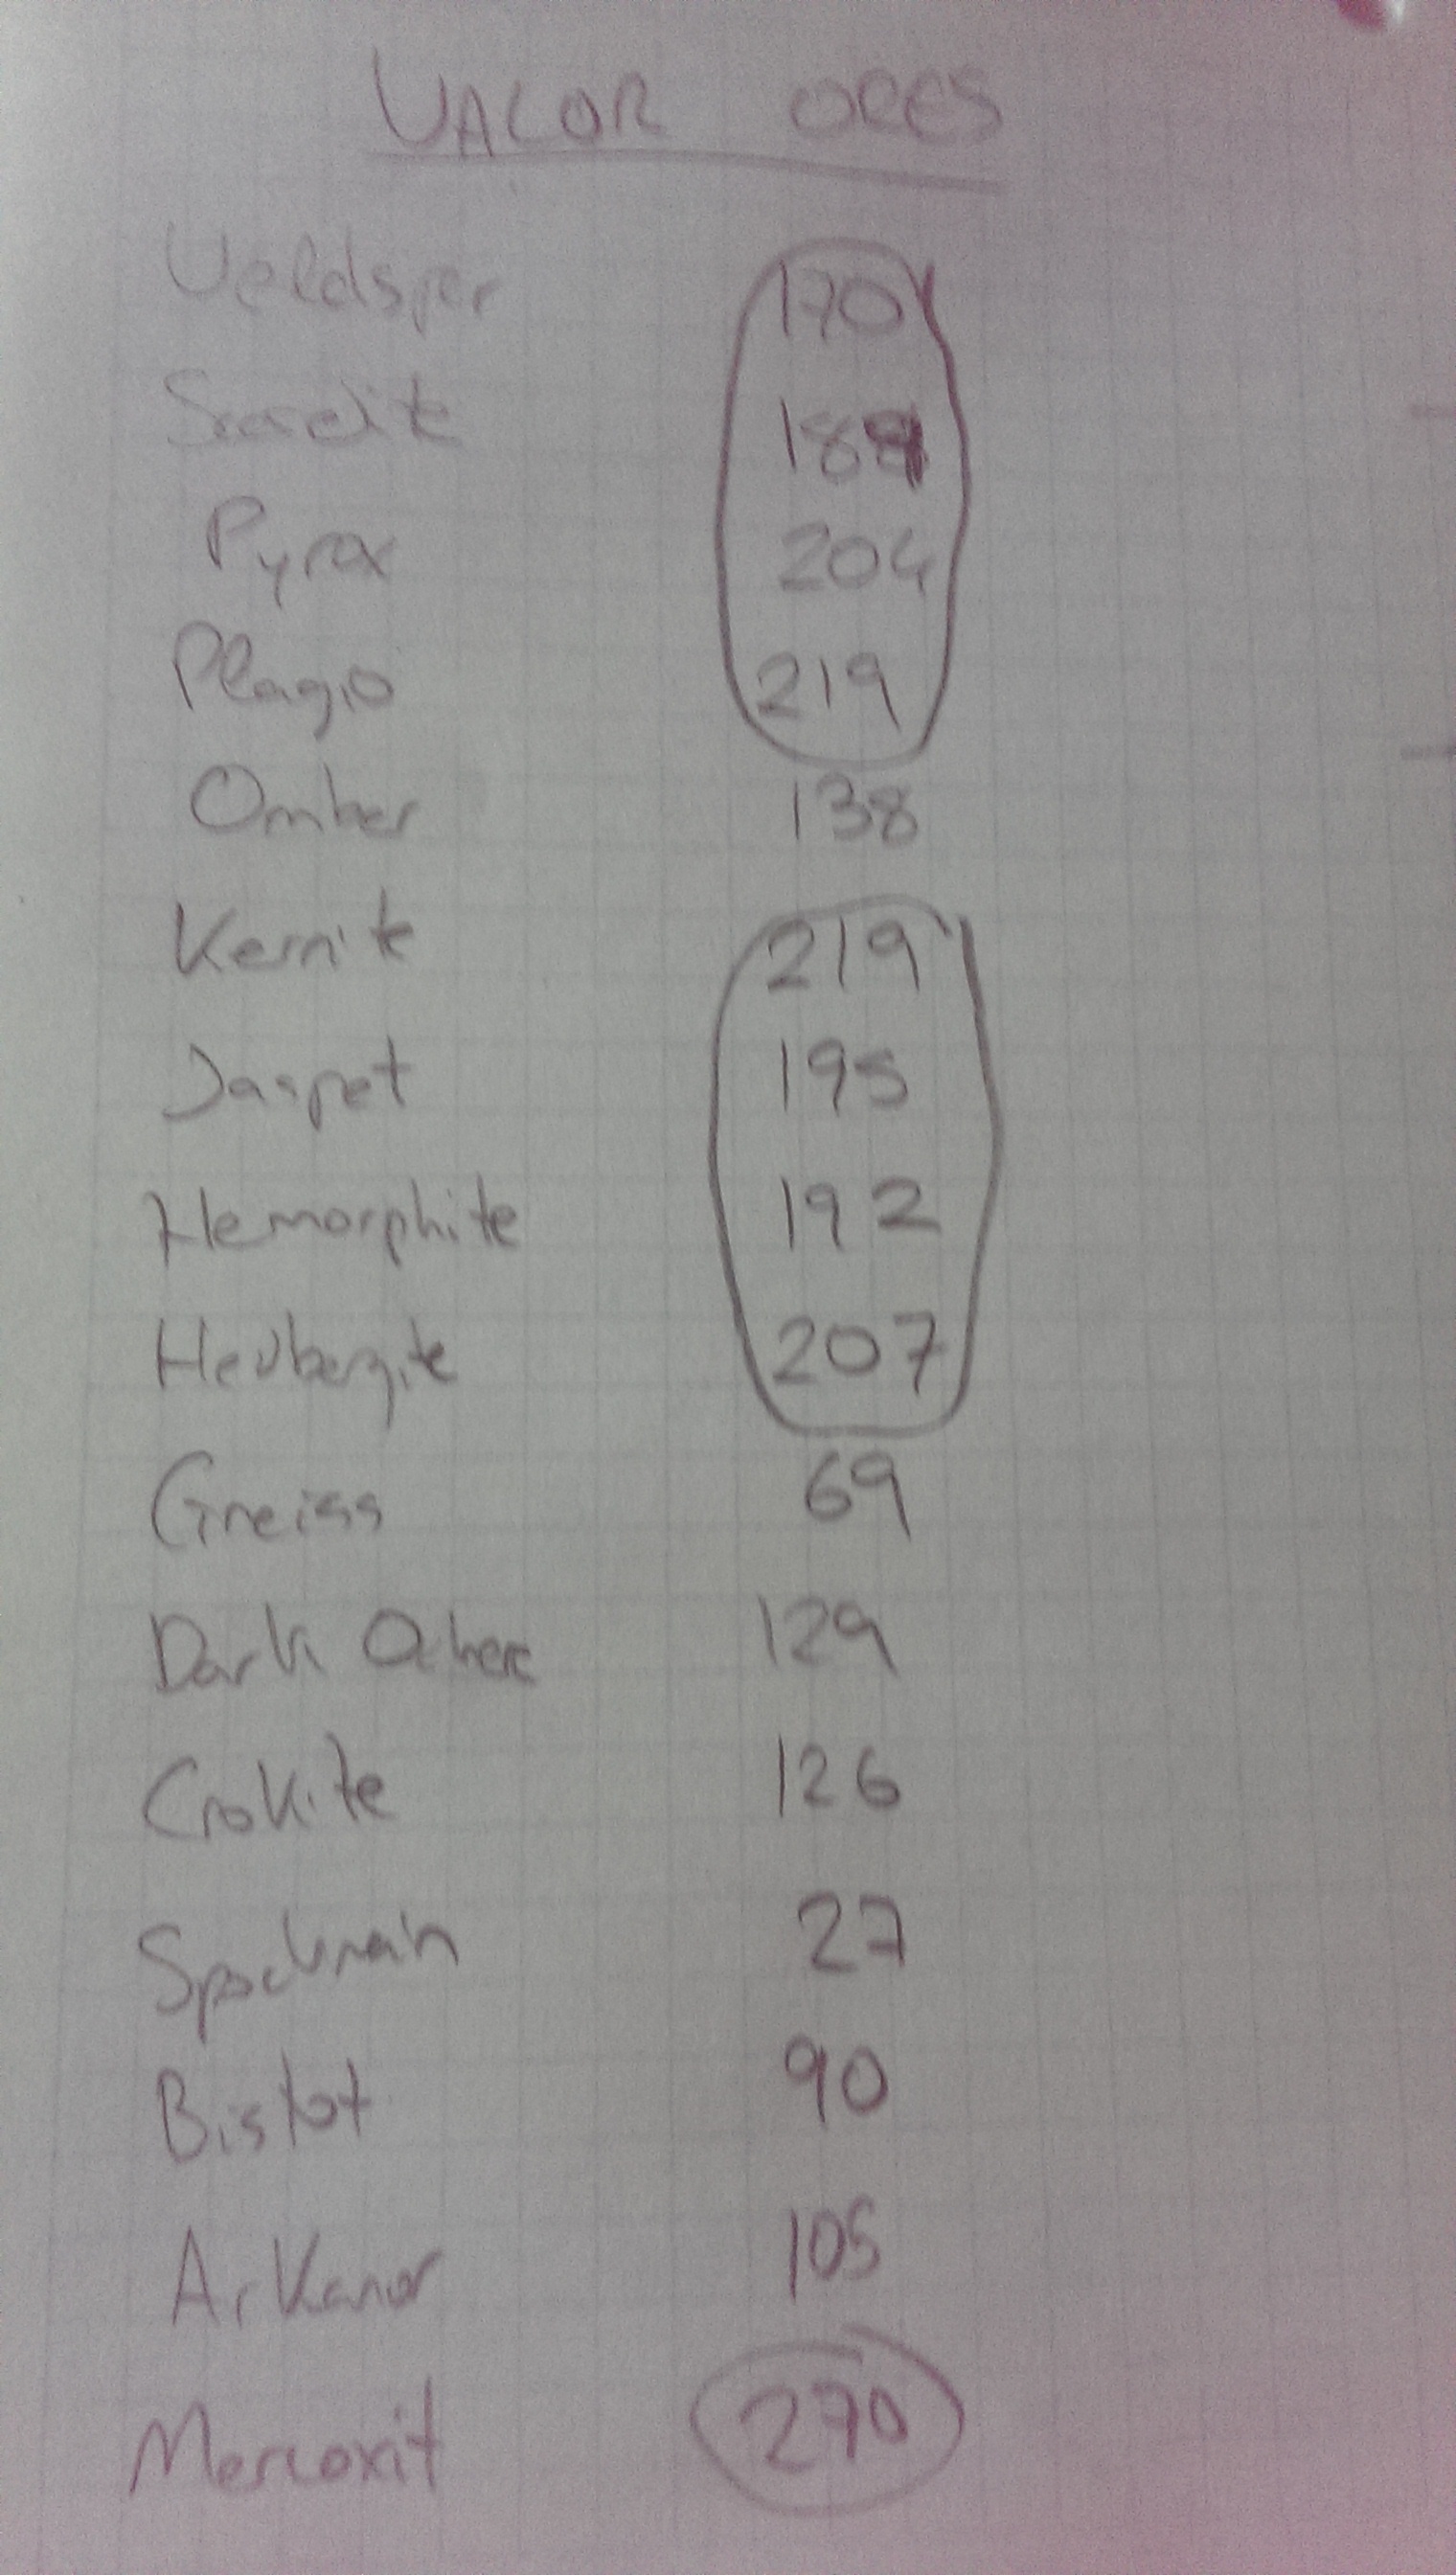 VALOR ORES
Veldsper 170
Scordite 189
Pyrox 204
Plagio 219
Omber 138
Kernite 219
Jaspet 195
Hemorphite 192
Hedbergite 207
Greiss 69
Dark Ochere 129
Crokite 126
Spodumain 27
Bistot 90
Arkanor 105
Mercoxit 270